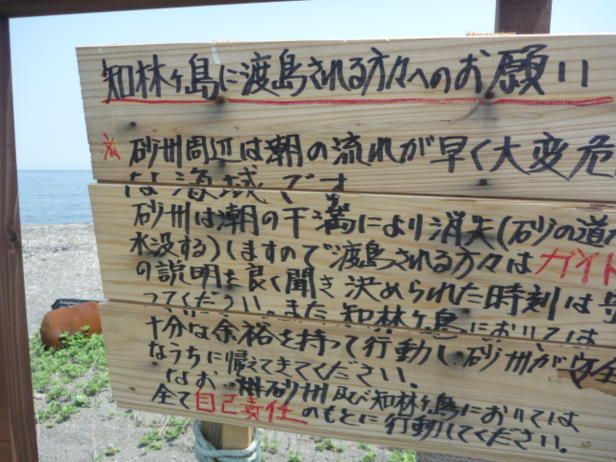 知林ヶ島に渡島される方々へのお願い
※砂州周辺は潮の流れが早く大変危
な海域です
砂州は潮の干満により消失(砂の道が
水没する)しますので渡島される方々はガイド
の説明を良く聞き決められた時刻は守
ってください。また知林ヶ島においては
十分な余裕を持って行動し砂州が安全
なうちに帰えてきてください。
なお、砂州及び知林ヶ島においては
全て自己責任のもとに行動してください。